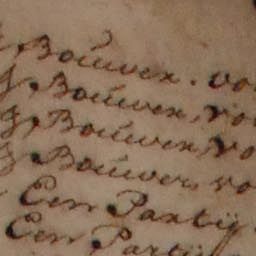 Bouwen. vo
Bouwen, vo
Bouwen, vo
Bouwen, vo
Een Partij
Een Partij